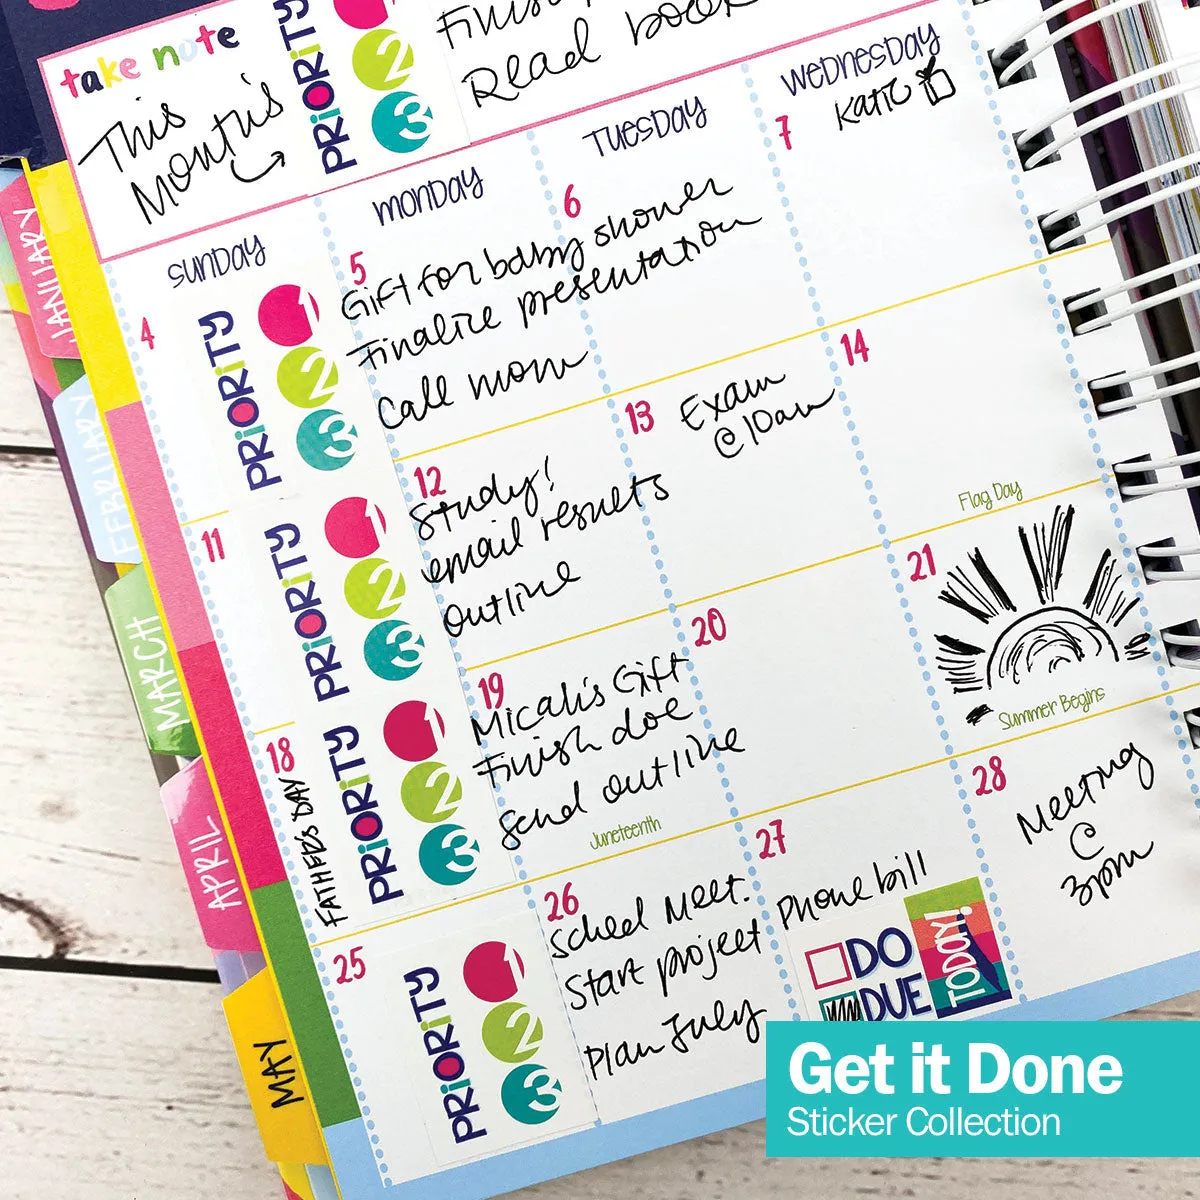 take note
This
Month's
PRiORiTY
1
2
3
Finish
Read book
SUNDAY
MONDAY
TUESDAY
WEDNESDAY
4
PRiORiTY
1
2
3
5
Gift for baby shower
Finalize presentation
Call mom
6
7
Katie
11
PRiORiTY
1
2
3
12
Study!
email results
outline
13
Exam
@ 10am
14
Flag Day
18
FATHER'S DAY
PRiORiTY
1
2
3
19
Micali's Gift
Finish doc
Send outline
Juneteenth
20
21
Summer Begins
25
PRiORiTY
1
2
3
26
Sched Meet.
Start project
Plan July
27
Phone bill
DO
DUE
TODAY!
28
Meeting
@
3pm
JANUARY
FEBRUARY
MARCH
APRIL
MAY
Get it Done
Sticker Collection